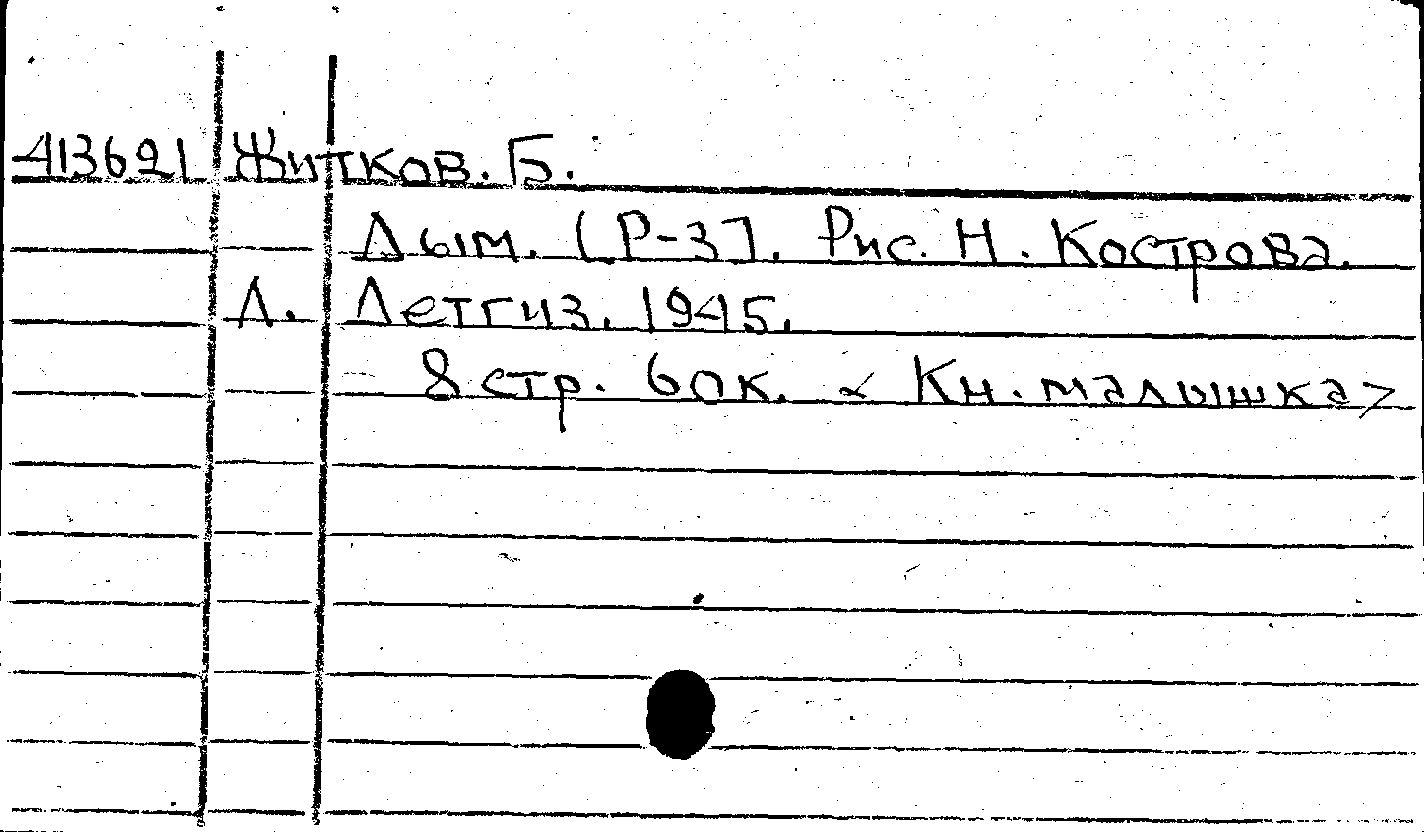 413621 Житков. Б.
Дым. [Р-з]. Рис. Н. Кострова.
Л. Летгиз. 1945.
8 стр. 60к. < Кн. малышка>